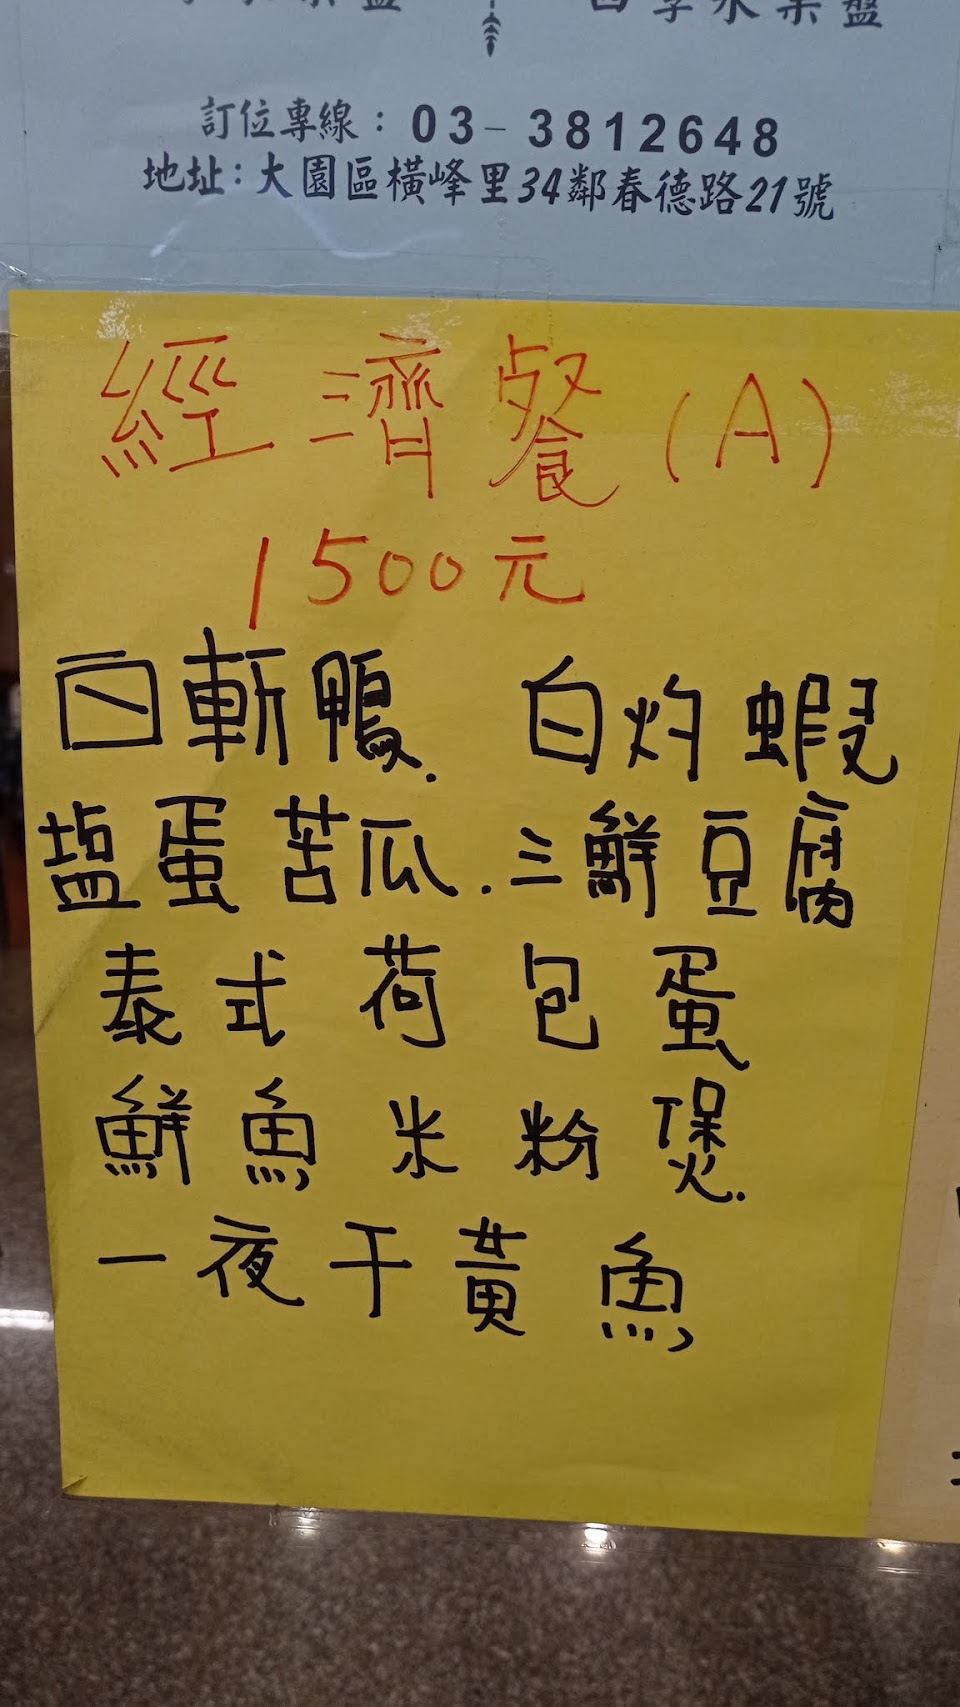 四季水果盤
訂位專線：03-3812648
地址：大園區橫峰里34鄰春德路21號
經濟餐(A)
1500元
白斬鴨. 白灼蝦
塩蛋苦瓜.三鮮豆腐
泰式荷包蛋
鮮魚米粉煲.
一夜干黃魚